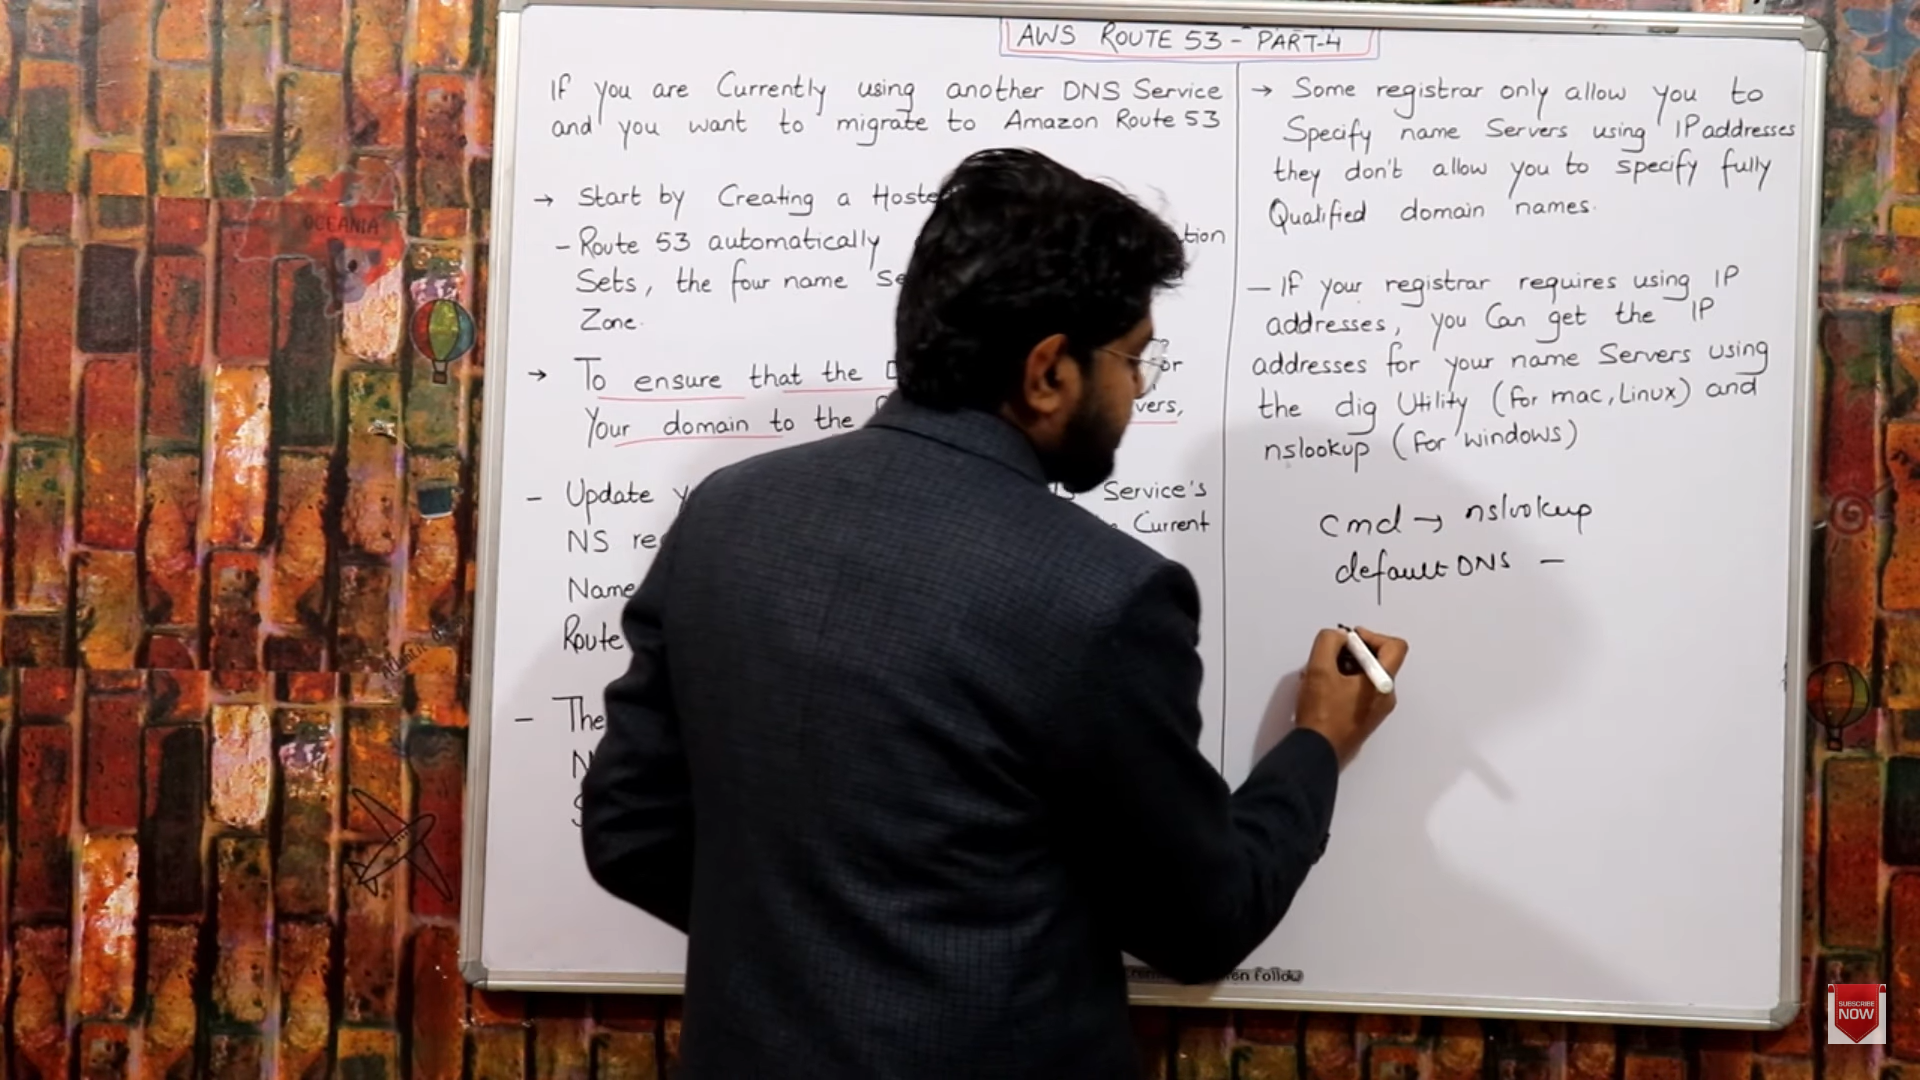 AWS ROUTE 53 - PART-4
If you are Currently using another DNS Service
and you want to migrate to Amazon Route 53
→ Start by Creating a Hoste
- Route 53 automatically
Sets, the four name
Zone.
→ To ensure that the
Your domain to the
- Update
Service's
NS
Current
Name
Route
- The
→ Some registrar only allow you to
Specify name Servers using IP addresses
they don't allow you to specify fully
Qualified domain names.
- If your registrar requires using IP
addresses, you Can get the IP
addresses for your name Servers using
the dig Utility (for mac, Linux) and
nslookup (for windows)
cmd → nslookup
default DNS -
OCEANIA
Atlantic
follow
SUBSCRIBE
NOW